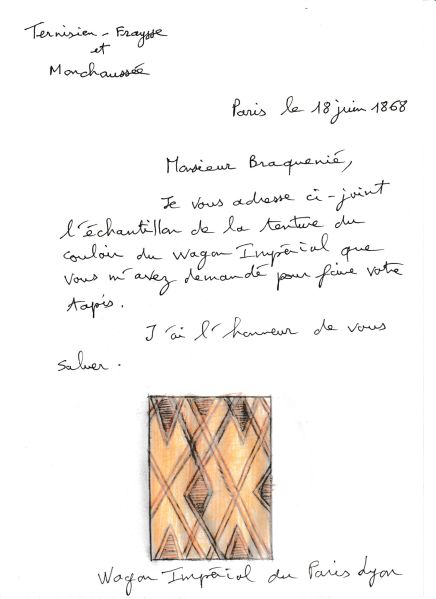 Ternisien - Fraysse
et
Monchaussée
Paris le 18 juin 1868
Monsieur Braquenié,
Je vous adresse ci-joint
l'échantillon de la tenture du
couloir du Wagon Impérial que
vous m'avez demandé pour faire votre
tapis.
J'ai l'honneur de vous
saluer.
Wagon Impérial du Paris Lyon